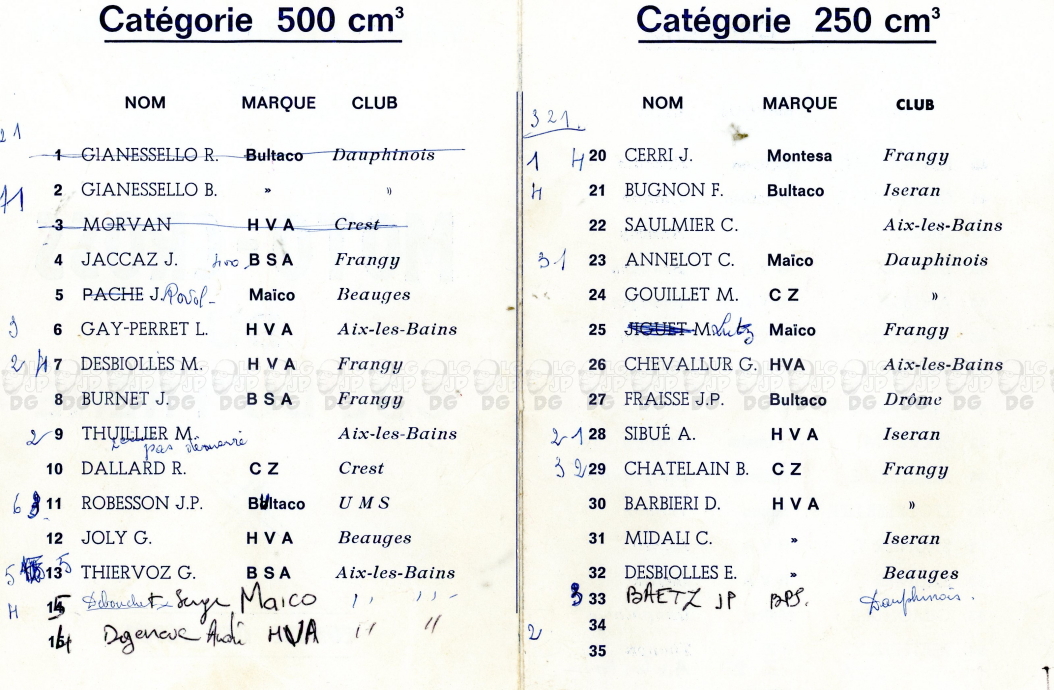 Catégorie 500 cm³
NOM MARQUE CLUB
21
1 GIANESSELLO R. Bultaco Dauphinois
2 GIANESSELLO B. » »
3 MORVAN H V A Crest
4 JACCAZ J. 400 B S A Frangy
5 PACHE J. Maïco Beauges
3 6 GAY-PERRET L. H V A Aix-les-Bains
2 4 7 DESBIOLLES M. H V A Frangy
8 BURNET J. B S A Frangy
2 9 THUILLIER M. Aix-les-Bains
pas démarré
10 DALLARD R. C Z Crest
6 11 ROBESSON J.P. Bultaco U M S
12 JOLY G. H V A Beauges
5 5 13 THIERVOZ G. B S A Aix-les-Bains
4 Serge Maico '' ''
André HVA '' ''
Catégorie 250 cm³
NOM MARQUE CLUB
3 2 1.
1 4 20 CERRI J. Montesa Frangy
4 21 BUGNON F. Bultaco Iseran
22 SAULMIER C. Aix-les-Bains
3 1 23 ANNELOT C. Maïco Dauphinois
24 GOUILLET M. C Z »
25 JIGUET M. Lutz Maïco Frangy
26 CHEVALLUR G. HVA Aix-les-Bains
27 FRAISSE J.P. Bultaco Drôme
2 1 28 SIBUÉ A. H V A Iseran
3 2 29 CHATELAIN B. C Z Frangy
30 BARBIERI D. H V A »
31 MIDALI C. » Iseran
32 DESBIOLLES E. » Beauges
3 33 BAETZ JP Dauphinois.
34
2
35